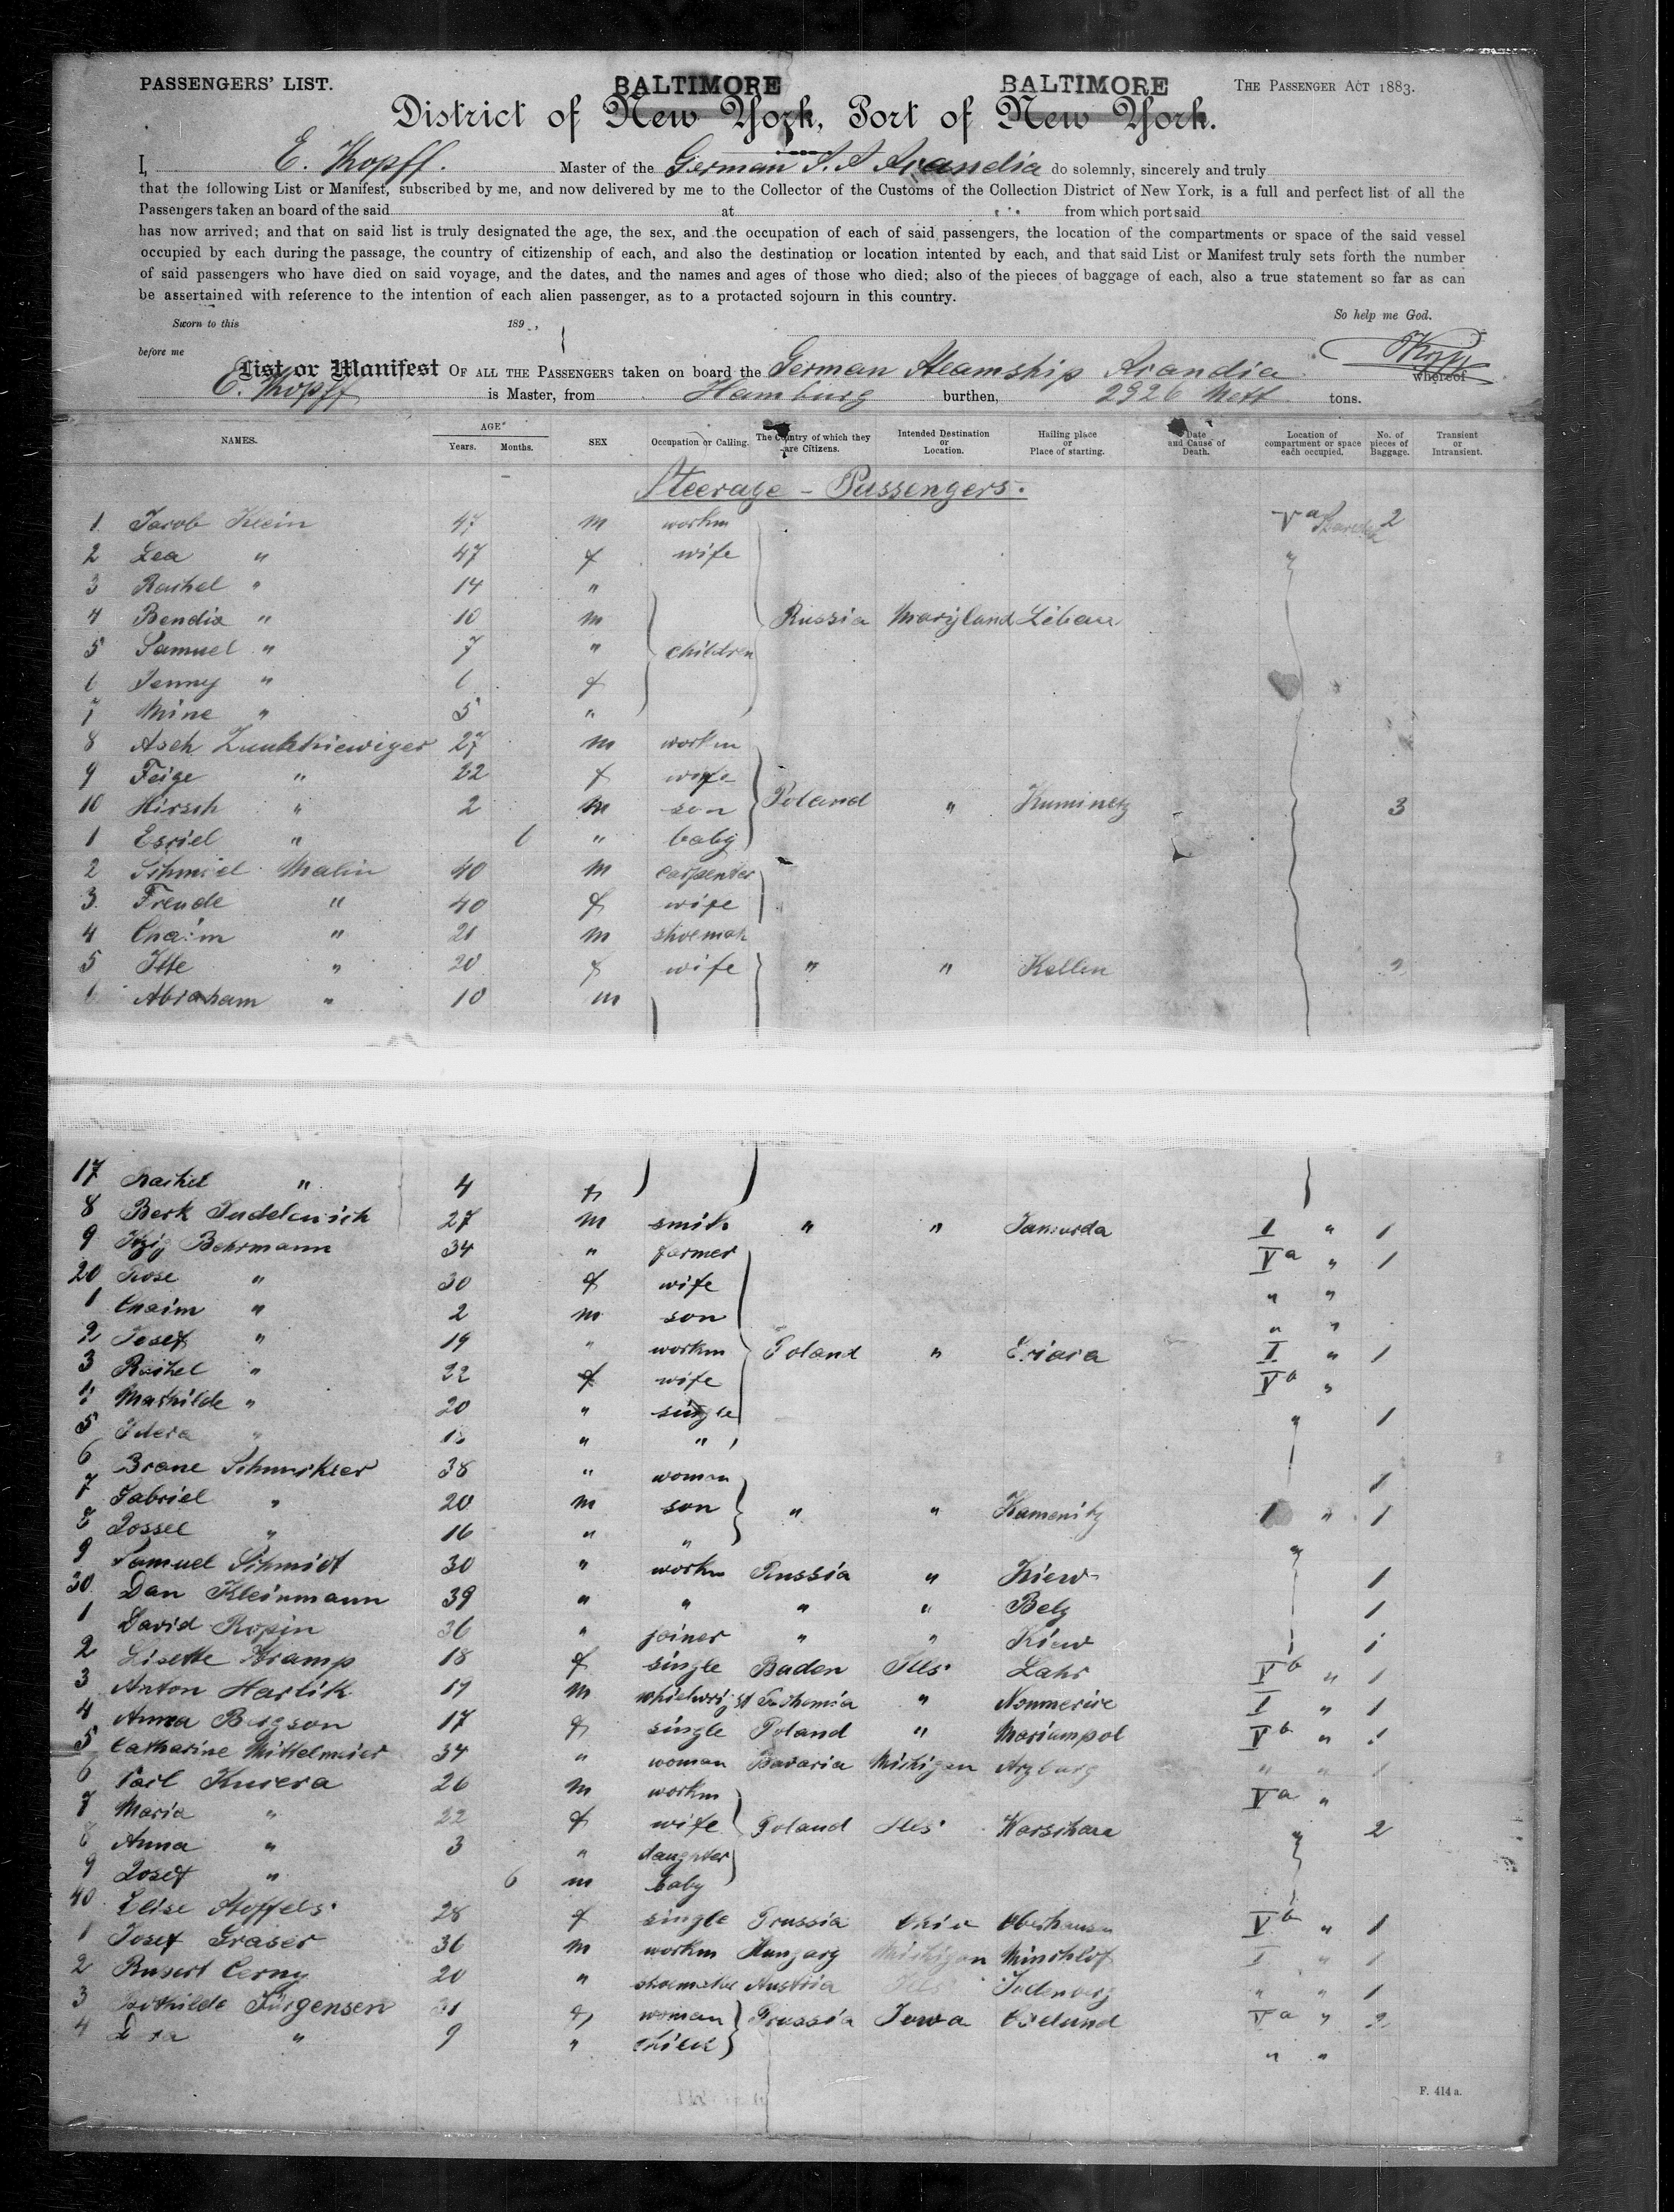 PASSENGERS' LIST. BALTIMORE BALTIMORE THE PASSENGER ACT 1883.
District of New York, Port of New York.
I, E. Kopff. Master of the German S. S. Arandia do solemnly, sincerely and truly
that the following List or Manifest, subscribed by me, and now delivered by me to the Collector of the Customs of the Collection District of New York, is a full and perfect list of all the
Passengers taken an board of the said at from which port said
has now arrived; and that on said list is truly designated the age, the sex, and the occupation of each of said passengers, the location of the compartments or space of the said vessel
occupied by each during the passage, the country of citizenship of each, and also the destination or location intented by each, and that said List or Manifest truly sets forth the number
of said passengers who have died on said voyage, and the dates, and the names and ages of those who died; also of the pieces of baggage of each, also a true statement so far as can
be assertained with reference to the intention of each alien passenger, as to a protacted sojourn in this country.
Sworn to this 189 , So help me God.
before me
List or Manifest OF ALL THE PASSENGERS taken on board the German Steamship Arandia whereof
E. Kopff is Master, from Hamburg burthen, 2926 Nett tons.
NAMES. AGE Years. Months. SEX Occupation or Calling. The Country of which they are Citizens. Intended Destination or Location. Hailing place or Place of starting. Date and Cause of Death. Location of compartment or space each occupied. No. of pieces of Baggage. Transient or Intransient.
Steerage - Passengers.
1 Jacob Klein 47 m workm V a 2
2 Lea " 47 f wife "
3 Rachel " 14 "
4 Bendix " 10 m Russia Maryland Libau
5 Samuel " 7 " children
6 Jenny " 6 f
7 Mine " 5 "
8 Asch 27 m workm
9 Feige " 22 f wife
10 Hirsch " 2 m son Poland " Kuminetz 3
1 Esriel " 6 " baby
2 Schmiel Malin 40 m carpenter
3 Freude " 40 f wife
4 Chaim " 21 m shoemak
5 Itte " 20 f wife " " Kallen 2
6 Abraham " 10 m
17 Rachel " 4 f
8 Berk Judelewich 27 m smith " " I " 1
9 Itzig Behrmann 34 " farmer V a " 1
20 Rose " 30 f wife " "
1 Chaim " 2 m son " "
2 Josef " 19 " workm Poland " I " 1
3 Rachel " 22 f wife V b "
4 Mathilde " 20 " single " 1
5 " " "
6 Brane 38 " woman 1
7 Gabriel " 20 m son " " Kamenitz 1 " 1
8 Jossel " 16 " "
9 Samuel Schmidt 30 " workm Russia " Kiew " 1
30 Dan Kleinmann 39 " " " " Belz 1
1 David Ropin 36 " joiner " " Kiew 1
2 Lisette Kramp 18 f single Baden Ills. Lahr V b " 1
3 Anton Harlik 19 m Bohemia " I " 1
4 Anna Bergson 17 f single Poland " Mariampol V b " 1
5 Catharine Mittelmeier 34 " woman Bavaria Michigan Arzburg " " 1
6 Carl Kurera 26 m workm V a "
7 Maria " 22 f wife Poland Ills. Warschau " 2
8 Anna " 3 " daughter
9 Josef " 6 m baby
40 Elise Stoffels 28 f single Prussia Ohio Oberhausen V b " 1
1 Josef Graser 36 m workm Hungary Michigan I " 1
2 Cerny 20 " shoemaker Austria Ills Judenberg " " 1
3 Bothilde Jürgensen 31 f woman Prussia Iowa V a " 2
4 " 9 " child " "
F. 414 a.